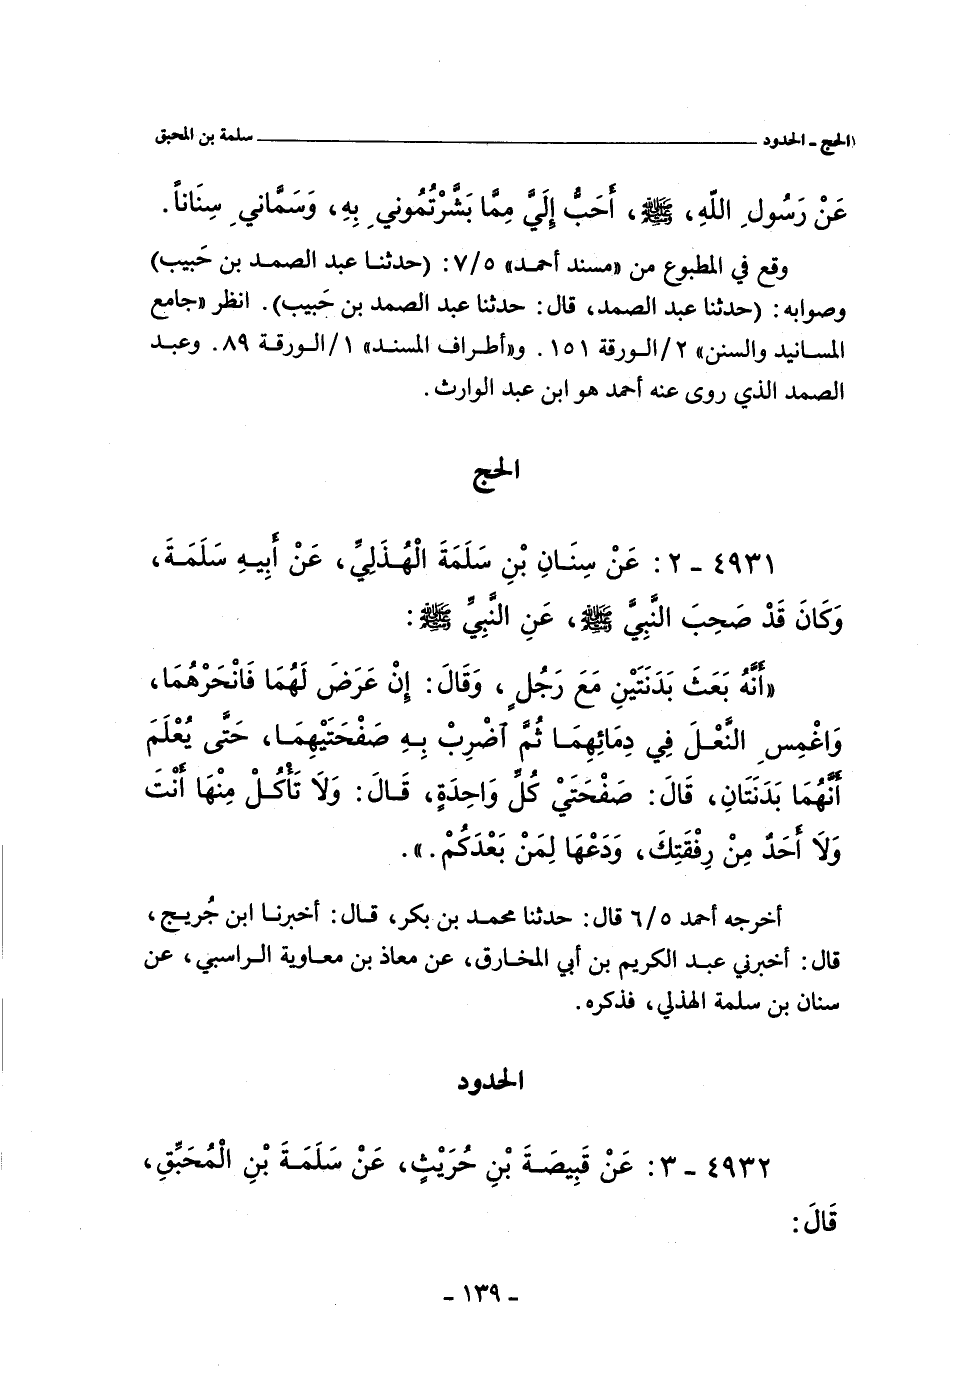 الحج - الحدود ــــــــــــــــــــــــــــــــــــــــ سلمة بن المحبق
عَنْ رَسُولِ اللّهِ، ﷺ، أَحَبُّ إِلَيَّ مِمَّا بَشَّرْتُمُونِي بِهِ، وَسَمَّانِي سِنَاناً.
وقع في المطبوع من «مسند أحمد» ٧/٥: (حدثنا عبد الصمد بن حَبيب)
وصوابه: (حدثنا عبد الصمد، قال: حدثنا عبد الصمد بن حَبيب). انظر «جامع
المسانيد والسنن» ٢/الورقة ١٥١. و«أطراف المسند» ١/الورقة ٨٩. وعبد
الصمد الذي روى عنه أحمد هو ابن عبد الوارث.
الحج
٤٩٣١ - ٢: عَنْ سِنَانِ بْنِ سَلَمَةَ الْهُذَلِيِّ، عَنْ أَبِيهِ سَلَمَةَ،
وَكَانَ قَدْ صَحِبَ النَّبِيَّ ﷺ، عَنِ النَّبِيِّ ﷺ:
«أَنَّهُ بَعَثَ بَدَنَتَيْنِ مَعَ رَجُلٍ، وَقَالَ: إِنْ عَرَضَ لَهُمَا فَانْحَرْهُمَا،
وَاغْمِسِ النَّعْلَ فِي دِمَائِهِمَا ثُمَّ آضْرِبْ بِهِ صَفْحَتَيْهِمَا، حَتَّى يُعْلَمَ
أَنَّهُمَا بَدَنَتَانِ، قَالَ: صَفْحَتَيْ كُلِّ وَاحِدَةٍ، قَالَ: وَلَا تَأْكُلْ مِنْهَا أَنْتَ
وَلَا أَحَدٌ مِنْ رِفْقَتِكَ، وَدَعْهَا لِمَنْ بَعْدَكُمْ.».
أخرجه أحمد ٦/٥ قال: حدثنا محمد بن بكر، قال: أخبرنا ابن جُريج،
قال: أخبرني عبد الكريم بن أبي المخارق، عن معاذ بن معاوية الراسبي، عن
سنان بن سلمة الهذلي، فذكره.
الحدود
٤٩٣٢ - ٣: عَنْ قَبِيصَةَ بْنِ حُرَيْثٍ، عَنْ سَلَمَةَ بْنِ الْمُحَبِّقِ،
قَالَ:
- ١٣٩ -